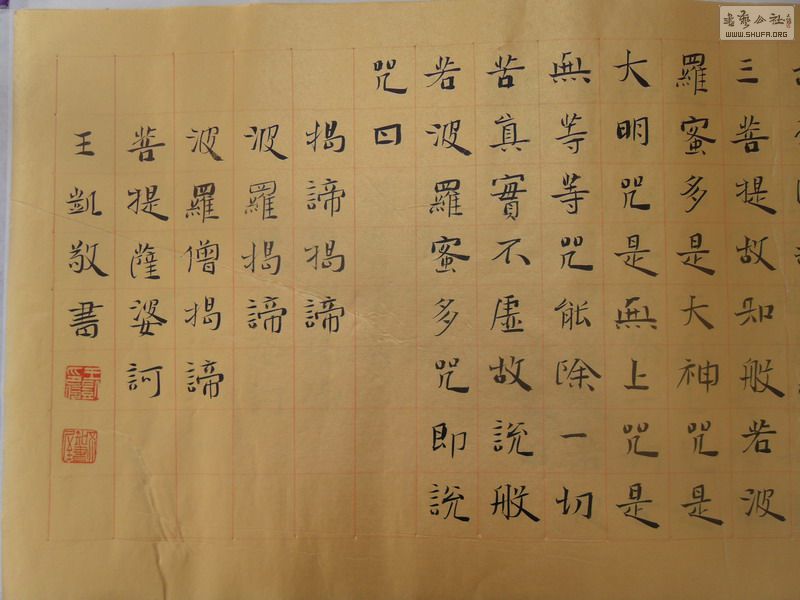 三菩提故知般若波
羅蜜多是大神咒是
大明咒是無上咒是
無等等咒能除一切
苦真實不虛故說般
若波羅蜜多咒即說
咒曰
揭諦揭諦
波羅揭諦
波羅僧揭諦
菩提薩婆訶
王凱敬書
書藝公社
WWW.SHUFA.ORG